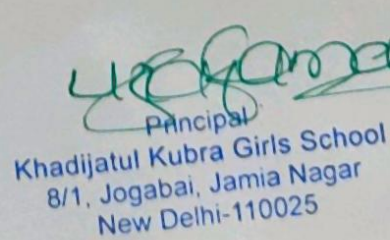 Principal
Khadijatul Kubra Girls School
8/1, Jogabai, Jamia Nagar
New Delhi-110025